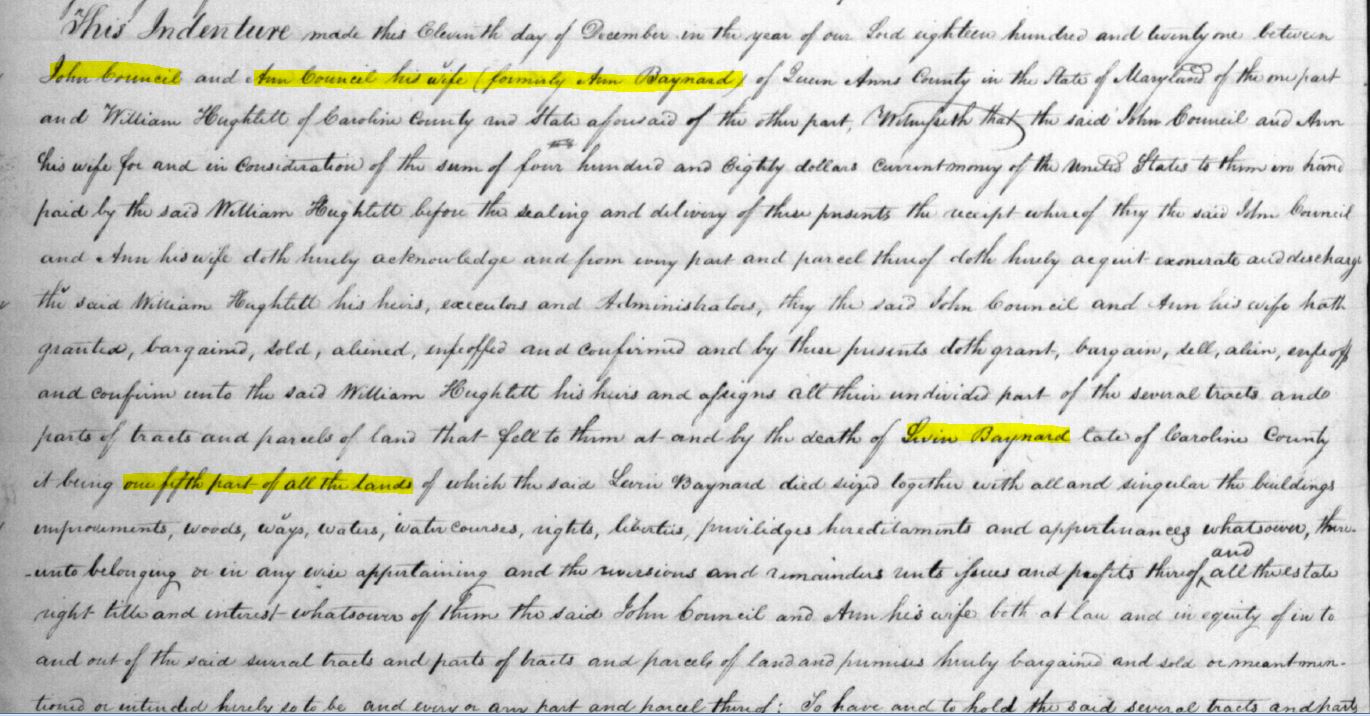 This Indenture made this Eleventh day of December in the year of our Lord eighteen hundred and twenty one between
John Council and Ann Council his wife (formerly Ann Baynard) of Queen Anns County in the State of Maryland of the one part
and William Hughlett of Caroline County and State aforesaid of the other part, Witnesseth that the said John Council and Ann
his wife for and in consideration of the sum of four hundred and Eighty dollars current money of the United States to them in hand
paid by the said William Hughlett before the sealing and delivery of these presents the receipt whereof they the said John Council
and Ann his wife doth hereby acknowledge and from every part and parcel thereof doth hereby acquit exonerate and discharge
the said William Hughlett his heirs, executors and Administrators, they the said John Council and Ann his wife hath
granted, bargained, sold, aliened, enfeoffed and confirmed and by these presents doth grant, bargain, sell, alien, enfeoff
and confirm unto the said William Hughlett his heirs and assigns all their undivided part of the several tracts and
parts of tracts and parcels of land that fell to them at and by the death of Levin Baynard late of Caroline County
it being one fifth part of all the lands of which the said Levin Baynard died siezed together with all and singular the buildings
improvements, woods, ways, waters, water courses, rights, liberties, priviledges hereditaments and appertinances whatsower, there-
-unto belonging or in any wise appertaining and the reversions and remainders rents issues and profits thereof, and all the estate
right title and interest whatsower of them the said John Council and Ann his wife both at law and in equity of in to
and out of the said several tracts and parts of tracts and parcels of land and premises hereby bargained and sold or meant men-
tioned or intended hereby so to be and every or any part and parcel thereof: To have and to hold the said several tracts and parts